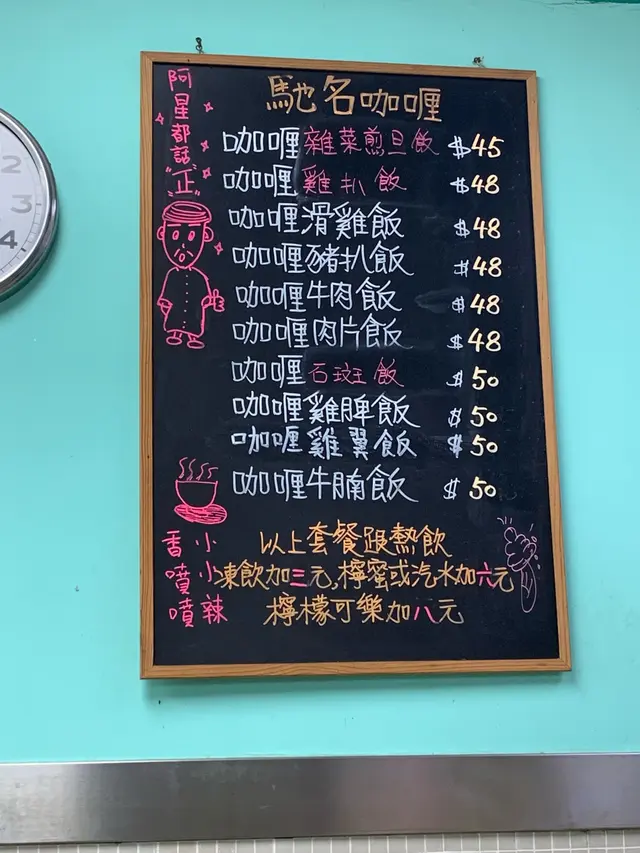 馳名咖喱
阿星都話
"正"
咖喱雜菜煎旦飯 $45
咖喱雞扒飯 $48
咖喱滑雞飯 $48
咖喱豬扒飯 $48
咖喱牛肉飯 $48
咖喱肉片飯 $48
咖喱石斑飯 $50
咖喱雞脾飯 $50
咖喱雞翼飯 $50
咖喱牛腩飯 $50
香噴噴
小小辣
以上套餐跟熱飲
凍飲加三元,檸蜜或汽水加六元
檸檬可樂加八元
2
3
4